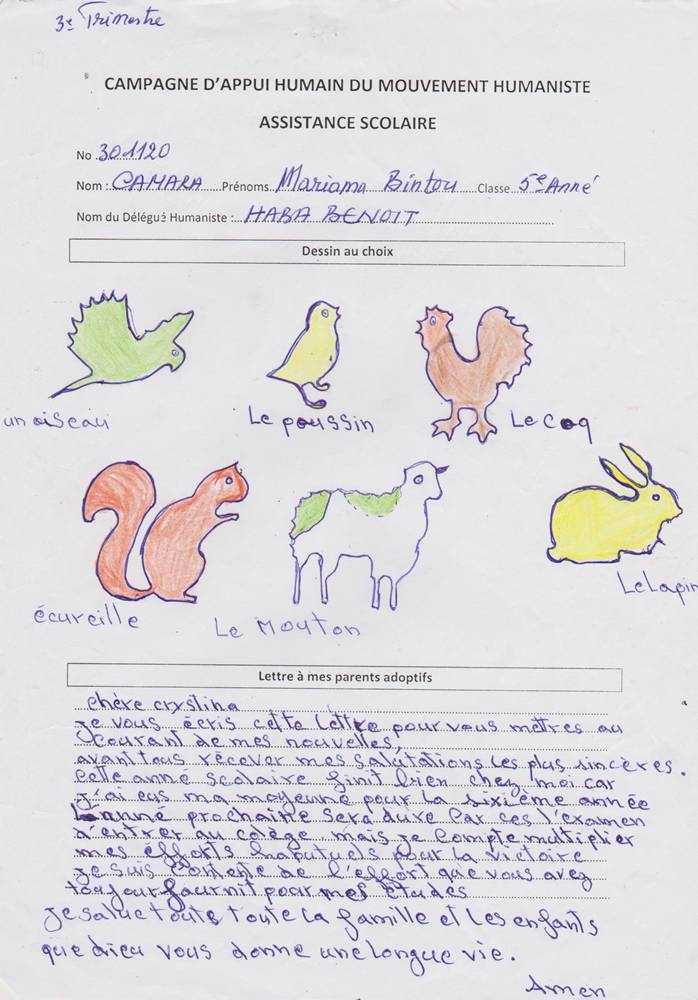 3e Trimestre
CAMPAGNE D'APPUI HUMAIN DU MOUVEMENT HUMANISTE
ASSISTANCE SCOLAIRE
No 301120
Nom : CAMARA Prénoms Mariama Bintou Classe 5e Anné
Nom du Délégué Humaniste : HABA BENOIT
Dessin au choix
un oiseau Le poussin Le coq
écureille Le Mouton Le Lapin
Lettre à mes parents adoptifs
chère crystina
je vous écris cette lettre pour vous mettres au
courant de mes nouvelles,
avant tous récever mes salutations les plus sincères.
cette anné scolaire finit bien chez moi car
j'ai eus ma moyenne pour la sixième année
L'anné prochaine sera dure car ces l'examen
d'entrer au colège mais je compte multiplier
mes efforts haputuels pour la victoire
je suis contente de l'effort que vous avez
toujour fournit pour mes études
je salue toute toute la famille et les enfants
que dieu vous donne une longue vie.
Amen